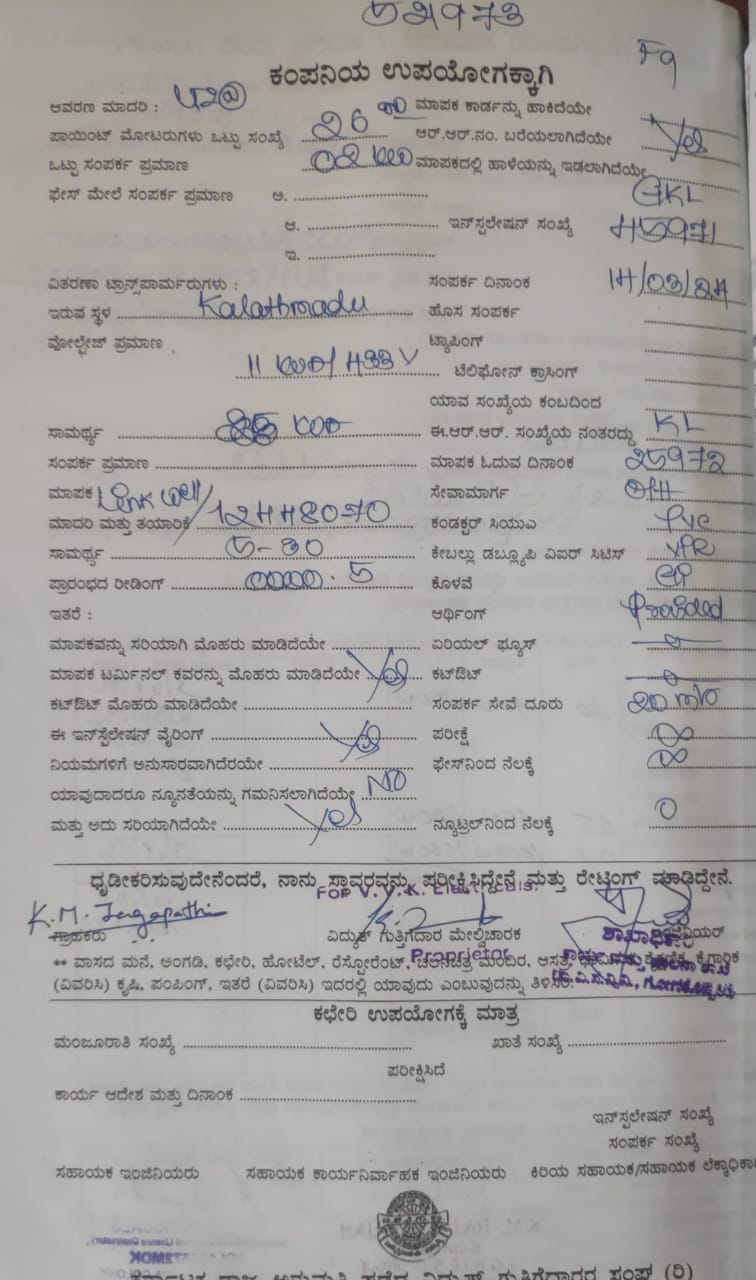 52973
ಕಂಪನಿಯ ಉಪಯೋಗಕ್ಕಾಗಿ
ಆವರಣ ಮಾದರಿ : ಮಾಪಕ ಕಾರ್ಡನ್ನು ಹಾಕಿದೆಯೇ
ಪಾಯಿಂಟ್ ಮೋಟರುಗಳು ಒಟ್ಟು ಸಂಖ್ಯೆ 26 ಆರ್.ಆರ್.ನಂ. ಬರೆಯಲಾಗಿದೆಯೇ Yes
ಒಟ್ಟು ಸಂಪರ್ಕ ಪ್ರಮಾಣ ಮಾಪಕದಲ್ಲಿ ಹಾಳೆಯನ್ನು ಇಡಲಾಗಿದೆಯೇ
ಫೇಸ್ ಮೇಲೆ ಸಂಪರ್ಕ ಪ್ರಮಾಣ ಅ. GKL
ಆ. ಇನ್‌ಸ್ಟಲೇಷನ್ ಸಂಖ್ಯೆ 45971
ಇ.
ವಿತರಣಾ ಟ್ರಾನ್ಸ್‌ಪಾರ್ಮರುಗಳು : ಸಂಪರ್ಕ ದಿನಾಂಕ 14/03/24
ಇರುವ ಸ್ಥಳ Kalathmadu ಹೊಸ ಸಂಪರ್ಕ
ವೋಲ್ಟೇಜ್ ಪ್ರಮಾಣ ಟ್ಯಾಪಿಂಗ್
11 433 V ಟೆಲಿಫೋನ್ ಕ್ರಾಸಿಂಗ್
ಯಾವ ಸಂಖ್ಯೆಯ ಕಂಬದಿಂದ
ಸಾಮರ್ಥ್ಯ ಈ.ಆರ್.ಆರ್. ಸಂಖ್ಯೆಯ ನಂತರದ್ದು KL
ಸಂಪರ್ಕ ಪ್ರಮಾಣ ಮಾಪಕ ಓದುವ ದಿನಾಂಕ 25972
ಮಾಪಕ Link well ಸೇವಾಮಾರ್ಗ O/H
ಮಾದರಿ ಮತ್ತು ತಯಾರಿಕೆ 12448070 ಕಂಡಕ್ಟರ್ ಸಿಯುಎ PVC
ಸಾಮರ್ಥ್ಯ 5-30 ಕೇಬಲ್ಲು ಡಬ್ಲ್ಯೂಪಿ ವಿಐರ್ ಸಿಟಿಸ್ VPR
ಪ್ರಾರಂಭದ ರೀಡಿಂಗ್ 0000.5 ಕೊಳವೆ GP
ಇತರೆ : ಆರ್ಥಿಂಗ್ Provided
ಮಾಪಕವನ್ನು ಸರಿಯಾಗಿ ಮೊಹರು ಮಾಡಿದೆಯೇ ಏರಿಯಲ್ ಫ್ಯೂಸ್
ಮಾಪಕ ಟರ್ಮಿನಲ್ ಕವರನ್ನು ಮೊಹರು ಮಾಡಿದೆಯೇ Yes ಕಟ್‌ಔಟ್
ಕಟ್‌ಔಟ್ ಮೊಹರು ಮಾಡಿದೆಯೇ ಸಂಪರ್ಕ ಸೇವೆ ದೂರು
ಈ ಇನ್‌ಸ್ಟೆಲೇಷನ್ ವೈರಿಂಗ್ Yes ಪರೀಕ್ಷೆ ∞
ನಿಯಮಗಳಿಗೆ ಅನುಸಾರವಾಗಿದೆರಯೇ ಫೇಸ್‌ನಿಂದ ನೆಲಕ್ಕೆ ∞
ಯಾವುದಾದರೂ ನ್ಯೂನತೆಯನ್ನು ಗಮನಿಸಲಾಗಿದೆಯೇ NO
ಮತ್ತು ಅದು ಸರಿಯಾಗಿದೆಯೇ Yes ನ್ಯೂಟ್ರಲ್‌ನಿಂದ ನೆಲಕ್ಕೆ 0
ಧೃಡೀಕರಿಸುವುದೇನೆಂದರೆ, ನಾನು ಸ್ಥಾವರವನ್ನು ಪರೀಕ್ಷಿಸಿದ್ದೇನೆ ಮತ್ತು ರೇಟಿಂಗ್ ಮಾಡಿದ್ದೇನೆ.
ಗ್ರಾಹಕರು ವಿದ್ಯುತ್ ಗುತ್ತಿಗೆದಾರ ಮೇಲ್ವಿಚಾರಕ
Proprietor
** ವಾಸದ ಮನೆ, ಅಂಗಡಿ, ಕಛೇರಿ, ಹೋಟೆಲ್, ರೆಸ್ಟೋರೆಂಟ್, ಚಲನಚಿತ್ರ ಮಂದಿರ, ಆಸತ್ರೆ, ಕೈಗಾರಿಕ
(ವಿವರಿಸಿ) ಕೃಷಿ, ಪಂಪಿಂಗ್, ಇತರೆ (ವಿವರಿಸಿ) ಇದರಲ್ಲಿ ಯಾವುದು ಎಂಬುವುದನ್ನು ತಿಳಿಸಿರಿ.
ಕಛೇರಿ ಉಪಯೋಗಕ್ಕೆ ಮಾತ್ರ
ಮಂಜೂರಾತಿ ಸಂಖ್ಯೆ ಖಾತೆ ಸಂಖ್ಯೆ
ಪರೀಕ್ಷಿಸಿದೆ
ಕಾರ್ಯ ಆದೇಶ ಮತ್ತು ದಿನಾಂಕ
ಇನ್‌ಸ್ಟಲೇಷನ್ ಸಂಖ್ಯೆ
ಸಂಪರ್ಕ ಸಂಖ್ಯೆ
ಸಹಾಯಕ ಇಂಜಿನಿಯರು ಸಹಾಯಕ ಕಾರ್ಯನಿರ್ವಾಹಕ ಇಂಜಿನಿಯರು ಕಿರಿಯ ಸಹಾಯಕ/ಸಹಾಯಕ ಲೆಕ್ಕಾಧಿಕಾರಿ